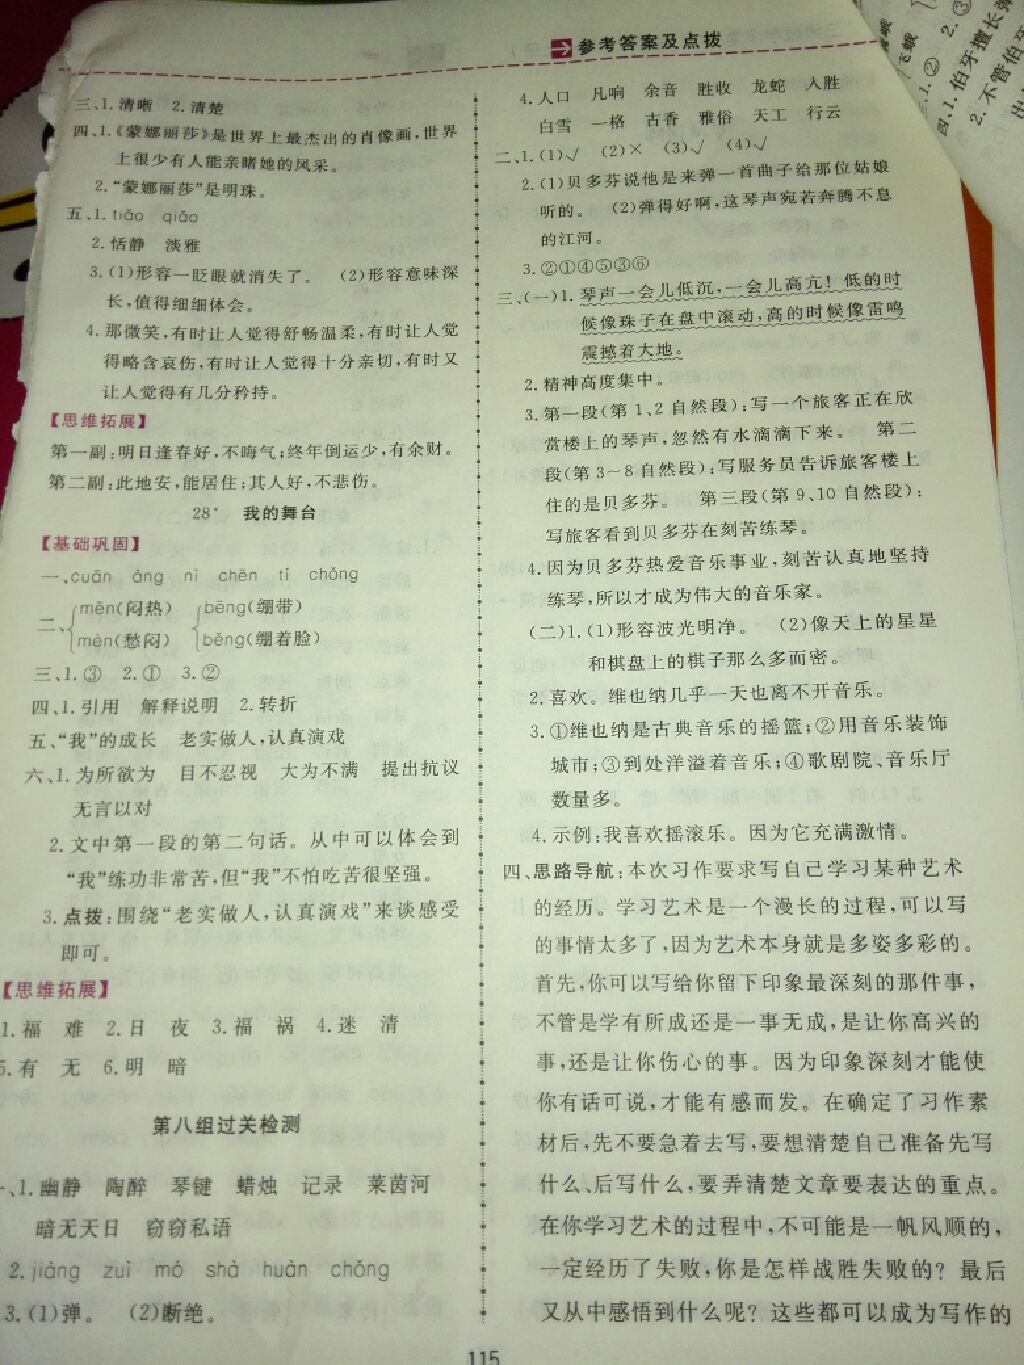 参考答案及点拨
三、1.清晰 2.清楚
四、1.《蒙娜丽莎》是世界上最杰出的肖像画,世界
上很少有人能亲睹她的风采。
2.“蒙娜丽莎”是明珠。
五、1.tiāo qiǎo
2.恬静 淡雅
3.(1)形容一眨眼就消失了。 (2)形容意味深
长,值得细细体会。
4.那微笑,有时让人觉得舒畅温柔,有时让人觉
得略含哀伤,有时让人觉得十分亲切,有时又
让人觉得有几分矜持。
【思维拓展】
第一副:明日逢春好,不晦气;终年倒运少,有余财。
第二副:此地安,能居住;其人好,不悲伤。
28* 我的舞台
【基础巩固】
一、cuān áng nì chēn tí chǒng
二、mēn(闷热) bēng(绷带)
mèn(愁闷) běng(绷着脸)
三、1.③ 2.① 3.②
四、1.引用 解释说明 2.转折
五、“我”的成长 老实做人,认真演戏
六、1.为所欲为 目不忍视 大为不满 提出抗议
无言以对
2.文中第一段的第二句话。从中可以体会到
“我”练功非常苦,但“我”不怕吃苦很坚强。
3.点拨:围绕“老实做人,认真演戏”来谈感受
即可。
【思维拓展】
1.福 难 2.日 夜 3.福 祸 4.迷 清
5.有 无 6.明 暗
第八组过关检测
一、1.幽静 陶醉 琴键 蜡烛 记录 莱茵河
暗无天日 窃窃私语
2.jiàng zuì mó shà huàn chǒng
3.(1)弹。 (2)断绝。
4.人口 凡响 余音 胜收 龙蛇 入胜
白雪 一格 古香 雅俗 天工 行云
二、1.(1)√ (2)× (3)√ (4)√
2.(1)贝多芬说他是来弹一首曲子给那位姑娘
听的。 (2)弹得好啊,这琴声宛若奔腾不息
的江河。
3.②①④⑤③⑥
三、(一)1.琴声一会儿低沉,一会儿高亢!低的时
候像珠子在盘中滚动,高的时候像雷鸣
震撼着大地。
2.精神高度集中。
3.第一段(第1、2自然段):写一个旅客正在欣
赏楼上的琴声,忽然有水滴滴下来。 第二
段(第3~8自然段):写服务员告诉旅客楼上
住的是贝多芬。 第三段(第9、10自然段):
写旅客看到贝多芬在刻苦练琴。
4.因为贝多芬热爱音乐事业,刻苦认真地坚持
练琴,所以才成为伟大的音乐家。
(二)1.(1)形容波光明净。 (2)像天上的星星
和棋盘上的棋子那么多而密。
2.喜欢。维也纳几乎一天也离不开音乐。
3.①维也纳是古典音乐的摇篮;②用音乐装饰
城市;③到处洋溢着音乐;④歌剧院、音乐厅
数量多。
4.示例:我喜欢摇滚乐。因为它充满激情。
四、思路导航:本次习作要求写自己学习某种艺术
的经历。学习艺术是一个漫长的过程,可以写
的事情太多了,因为艺术本身就是多姿多彩的。
首先,你可以写给你留下印象最深刻的那件事,
不管是学有所成还是一事无成,是让你高兴的
事,还是让你伤心的事。因为印象深刻才能使
你有话可说,才能有感而发。在确定了习作素
材后,先不要急着去写,要想清楚自己准备先写
什么、后写什么,要弄清楚文章要表达的重点。
在你学习艺术的过程中,不可能是一帆风顺的,
一定经历了失败,你是怎样战胜失败的?最后
又从中感悟到什么呢?这些都可以成为写作的
115
飞蛾
三、1.② 2.③
四、1.伯牙擅长弹
2.不管伯牙